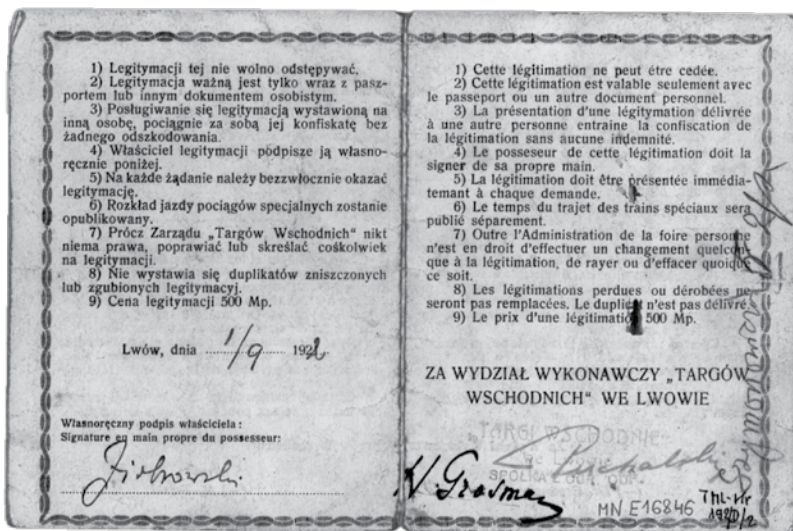 1) Legitymacji tej nie wolno odstępywać.
2) Legitymacja ważną jest tylko wraz z pasz-
portem lub innym dokumentem osobistym.
3) Posługiwanie się legitymacją wystawioną na
inną osobę, pociągnie za sobą jej konfiskatę bez
żadnego odszkodowania.
4) Właściciel legitymacji podpisze ją własno-
ręcznie poniżej.
5) Na każde żądanie należy bezzwłocznie okazać
legitymację.
6) Rozkład jazdy pociągów specjalnych zostanie
opublikowany.
7) Prócz Zarządu „Targów Wschodnich" nikt
niema prawa, poprawiać lub skreślać cośkolwiek
na legitymacji.
8) Nie wystawia się duplikatów zniszczonych
lub zgubionych legitymacyj.
9) Cena legitymacji 500 Mp.
Lwów, dnia 1/9 1922.
Własnoręczny podpis właściciela:
Signature en main propre du possesseur:
Ziołkowski
1) Cette légitimation ne peut étre cedée.
2) Cette légitimation est valable seulement avec
le passeport ou un autre document personnel.
3) La présentation d'une légitymation délivrée
à une autre personne entraine la confiscation de
la légitimation sans aucune indemnité.
4) Le posseseur de cette légitimation doit la
signer de sa propre main.
5) La légitimation doit être présentée immédia-
tement à chaque demande.
6) Le temps du trajet des trains spéciaux sera
publié séparement.
7) Outre l'Administration de la foire personne
n'est en droit d'effectuer un changement quelcon-
que à la légitimation, de rayer ou d'effacer quoique
ce soit.
8) Les légitimations perdues ou dérobées ne
seront pas remplacées. Le duplicat n'est pas délivré.
9) Le prix d'une légitimation 500 Mp.
ZA WYDZIAŁ WYKONAWCZY „TARGÓW
WSCHODNICH" WE LWOWIE
„TARGI WSCHODNIE
we Lwowie
SPÓŁKA Z OGR. ODP.
Puchalski
W. Grosman
MN E16846
THL-Nr